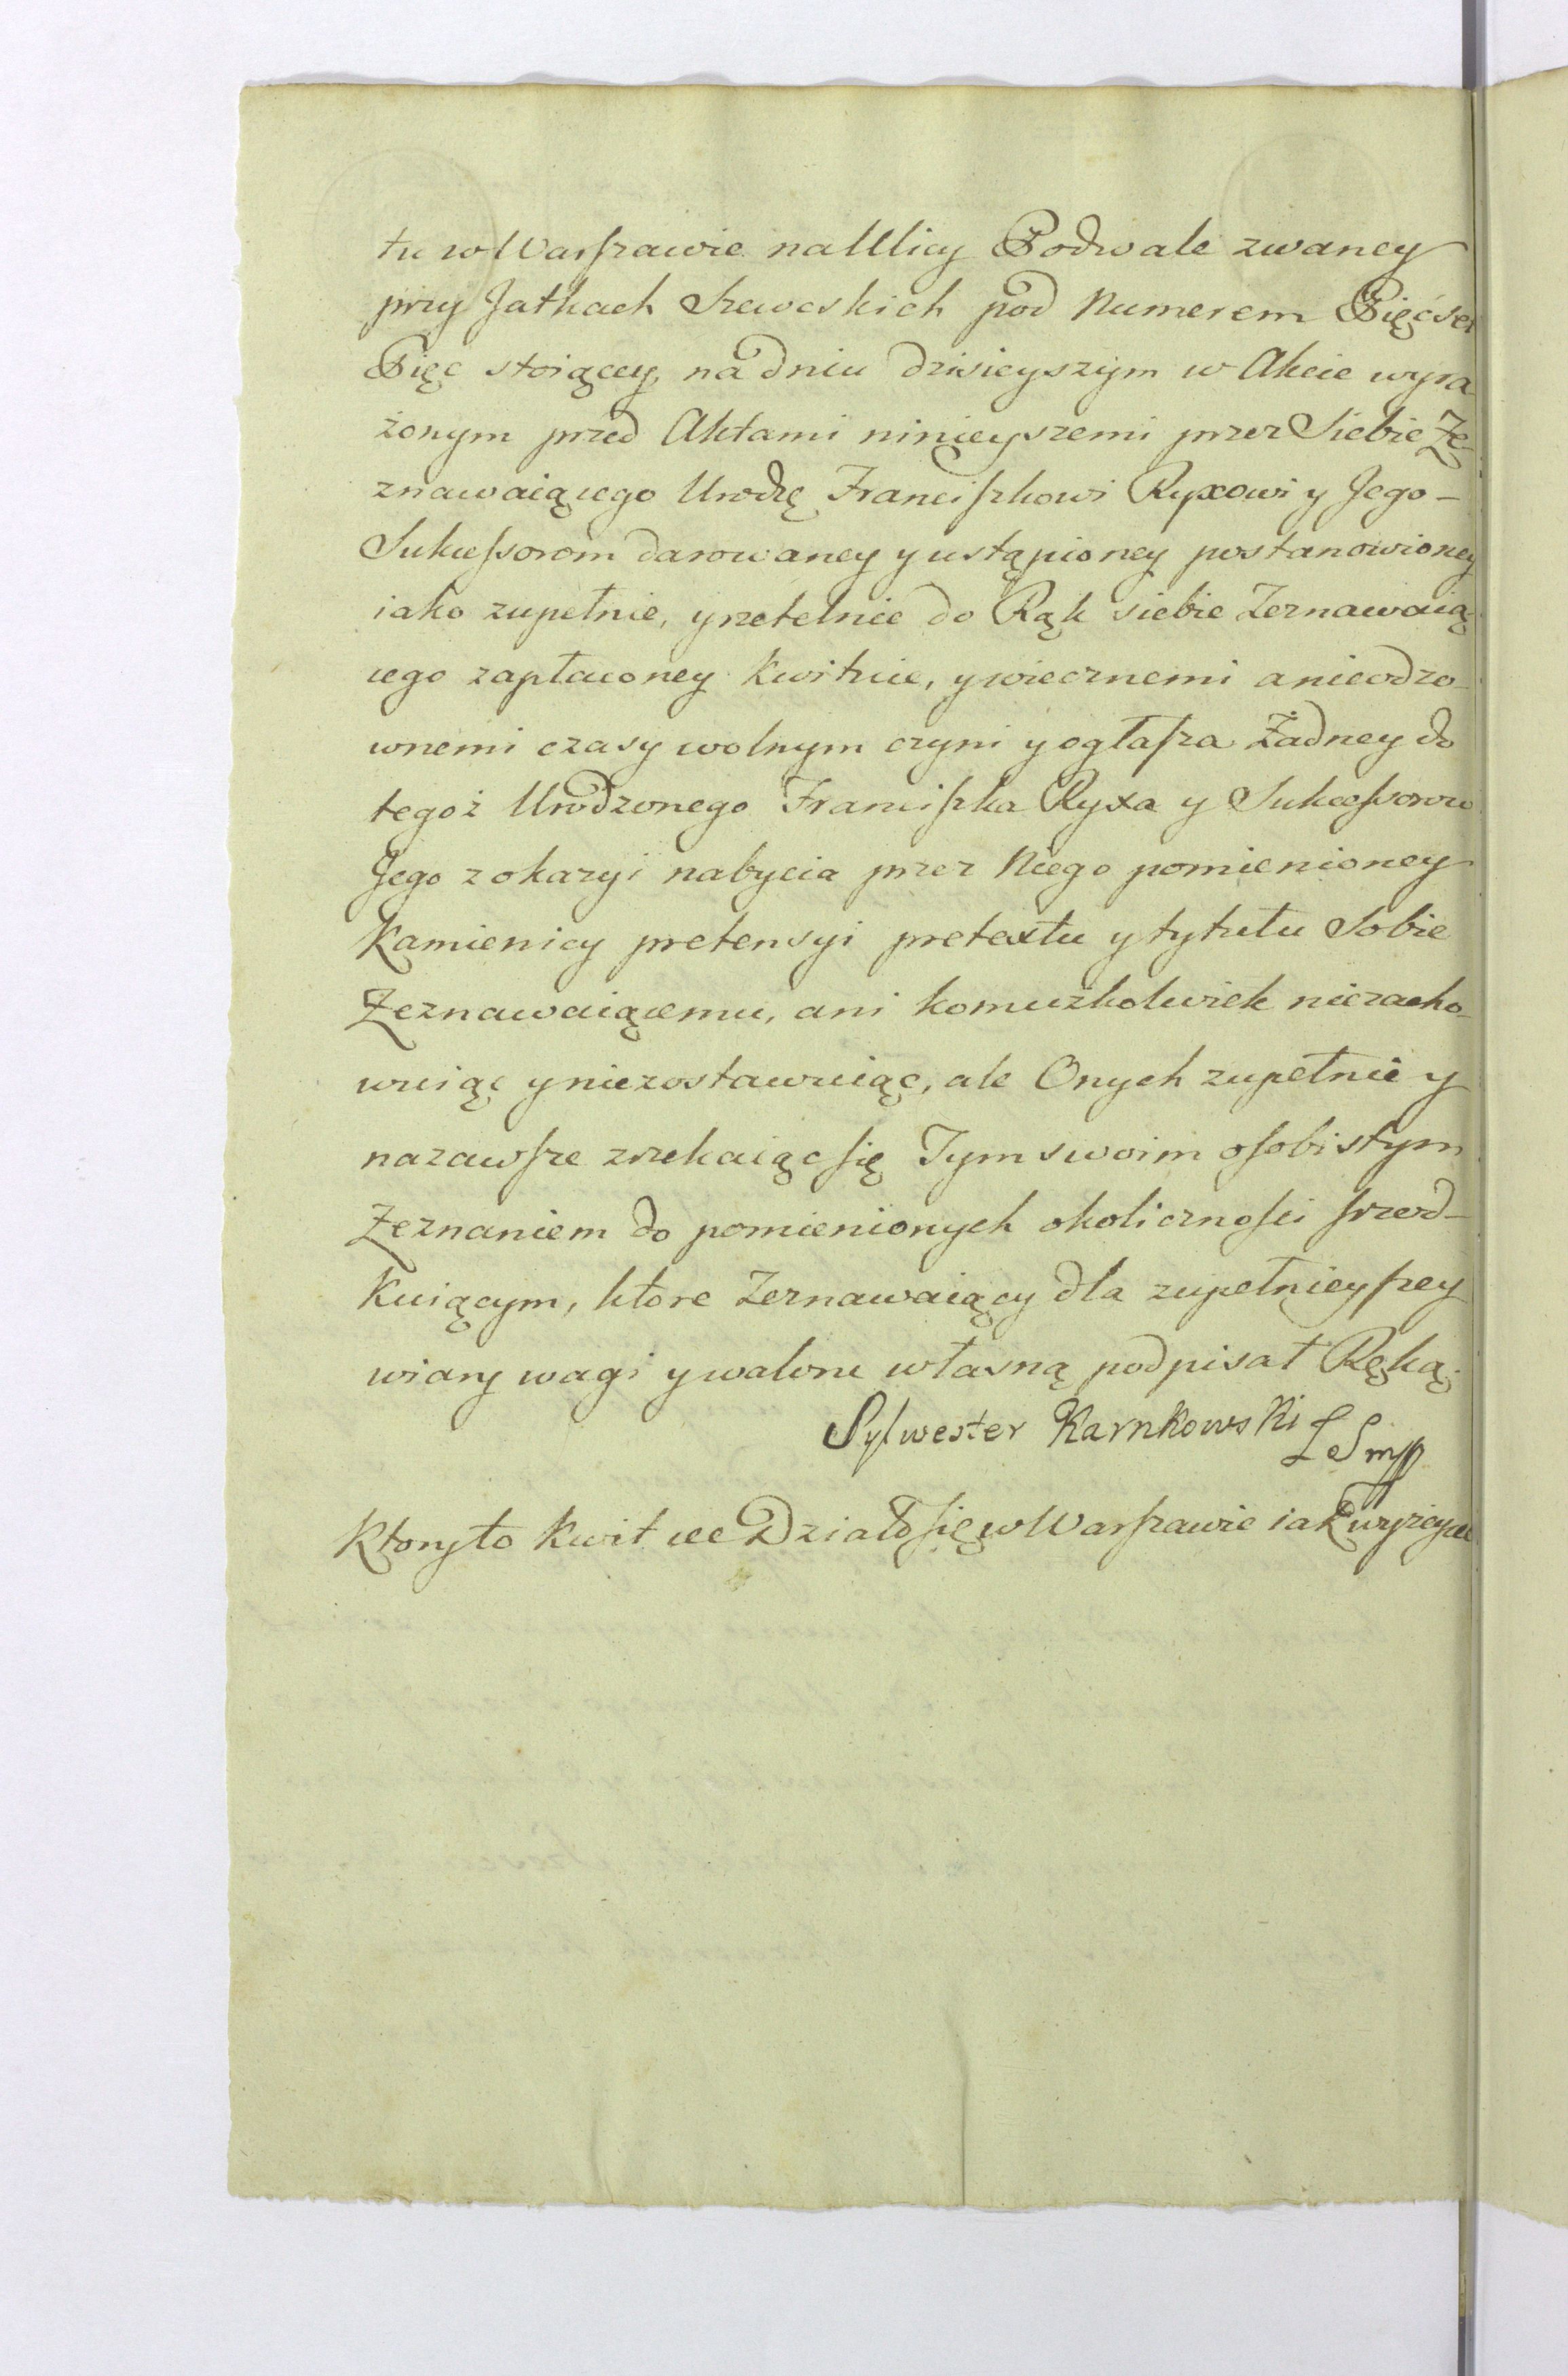 tu w Warſzawie na Ulicy Podwale zwaney
przy Jatkach Szewckich pod Numerem Pięćset
Pięc stoiącey, na dniu dzisieyszym w Akcie wyra
żonym przed Aktami ninieyszemi przez Siebie Ze
znawaiącego Urodzę Franciſzkowi Ryxowi y Jego –
Sukceſsorom darowaney y ustąpioney postanowioney
iako zupełnie, y rzetelnie do Rąk siebie Zeznawaią
cego zapłaconey kwituie, y wiecznemi a nieodzo-
wnemi czasy wolnym czyni y ogłaſza Żadney do
tegoż Urodzonego Franciſzka Ryxa y Sukceſsorow
Jego z okazyi nabycia przez Niego pomienioney
Kamienicy pretensyi pretextu y tytułu Sobie
Zeznawaiącemu, ani komuzkolwiek niezacho-
wuiąc y niezostawuiąc, ale Onych zupełnie y
nazawſze zrzekaiąc ſię Tym swoim oſobistym
Zeznaniem do pomienionych okolicznoſci ſrzod-
kuiącym, ktore Zeznawaiący dla zupełnieyſzey
wiary wagi y waloru własną podpisał Ręką.
Sylwester Karnkowski
Ktory to kwit Działo ſię w Warſzawie iak wyżey